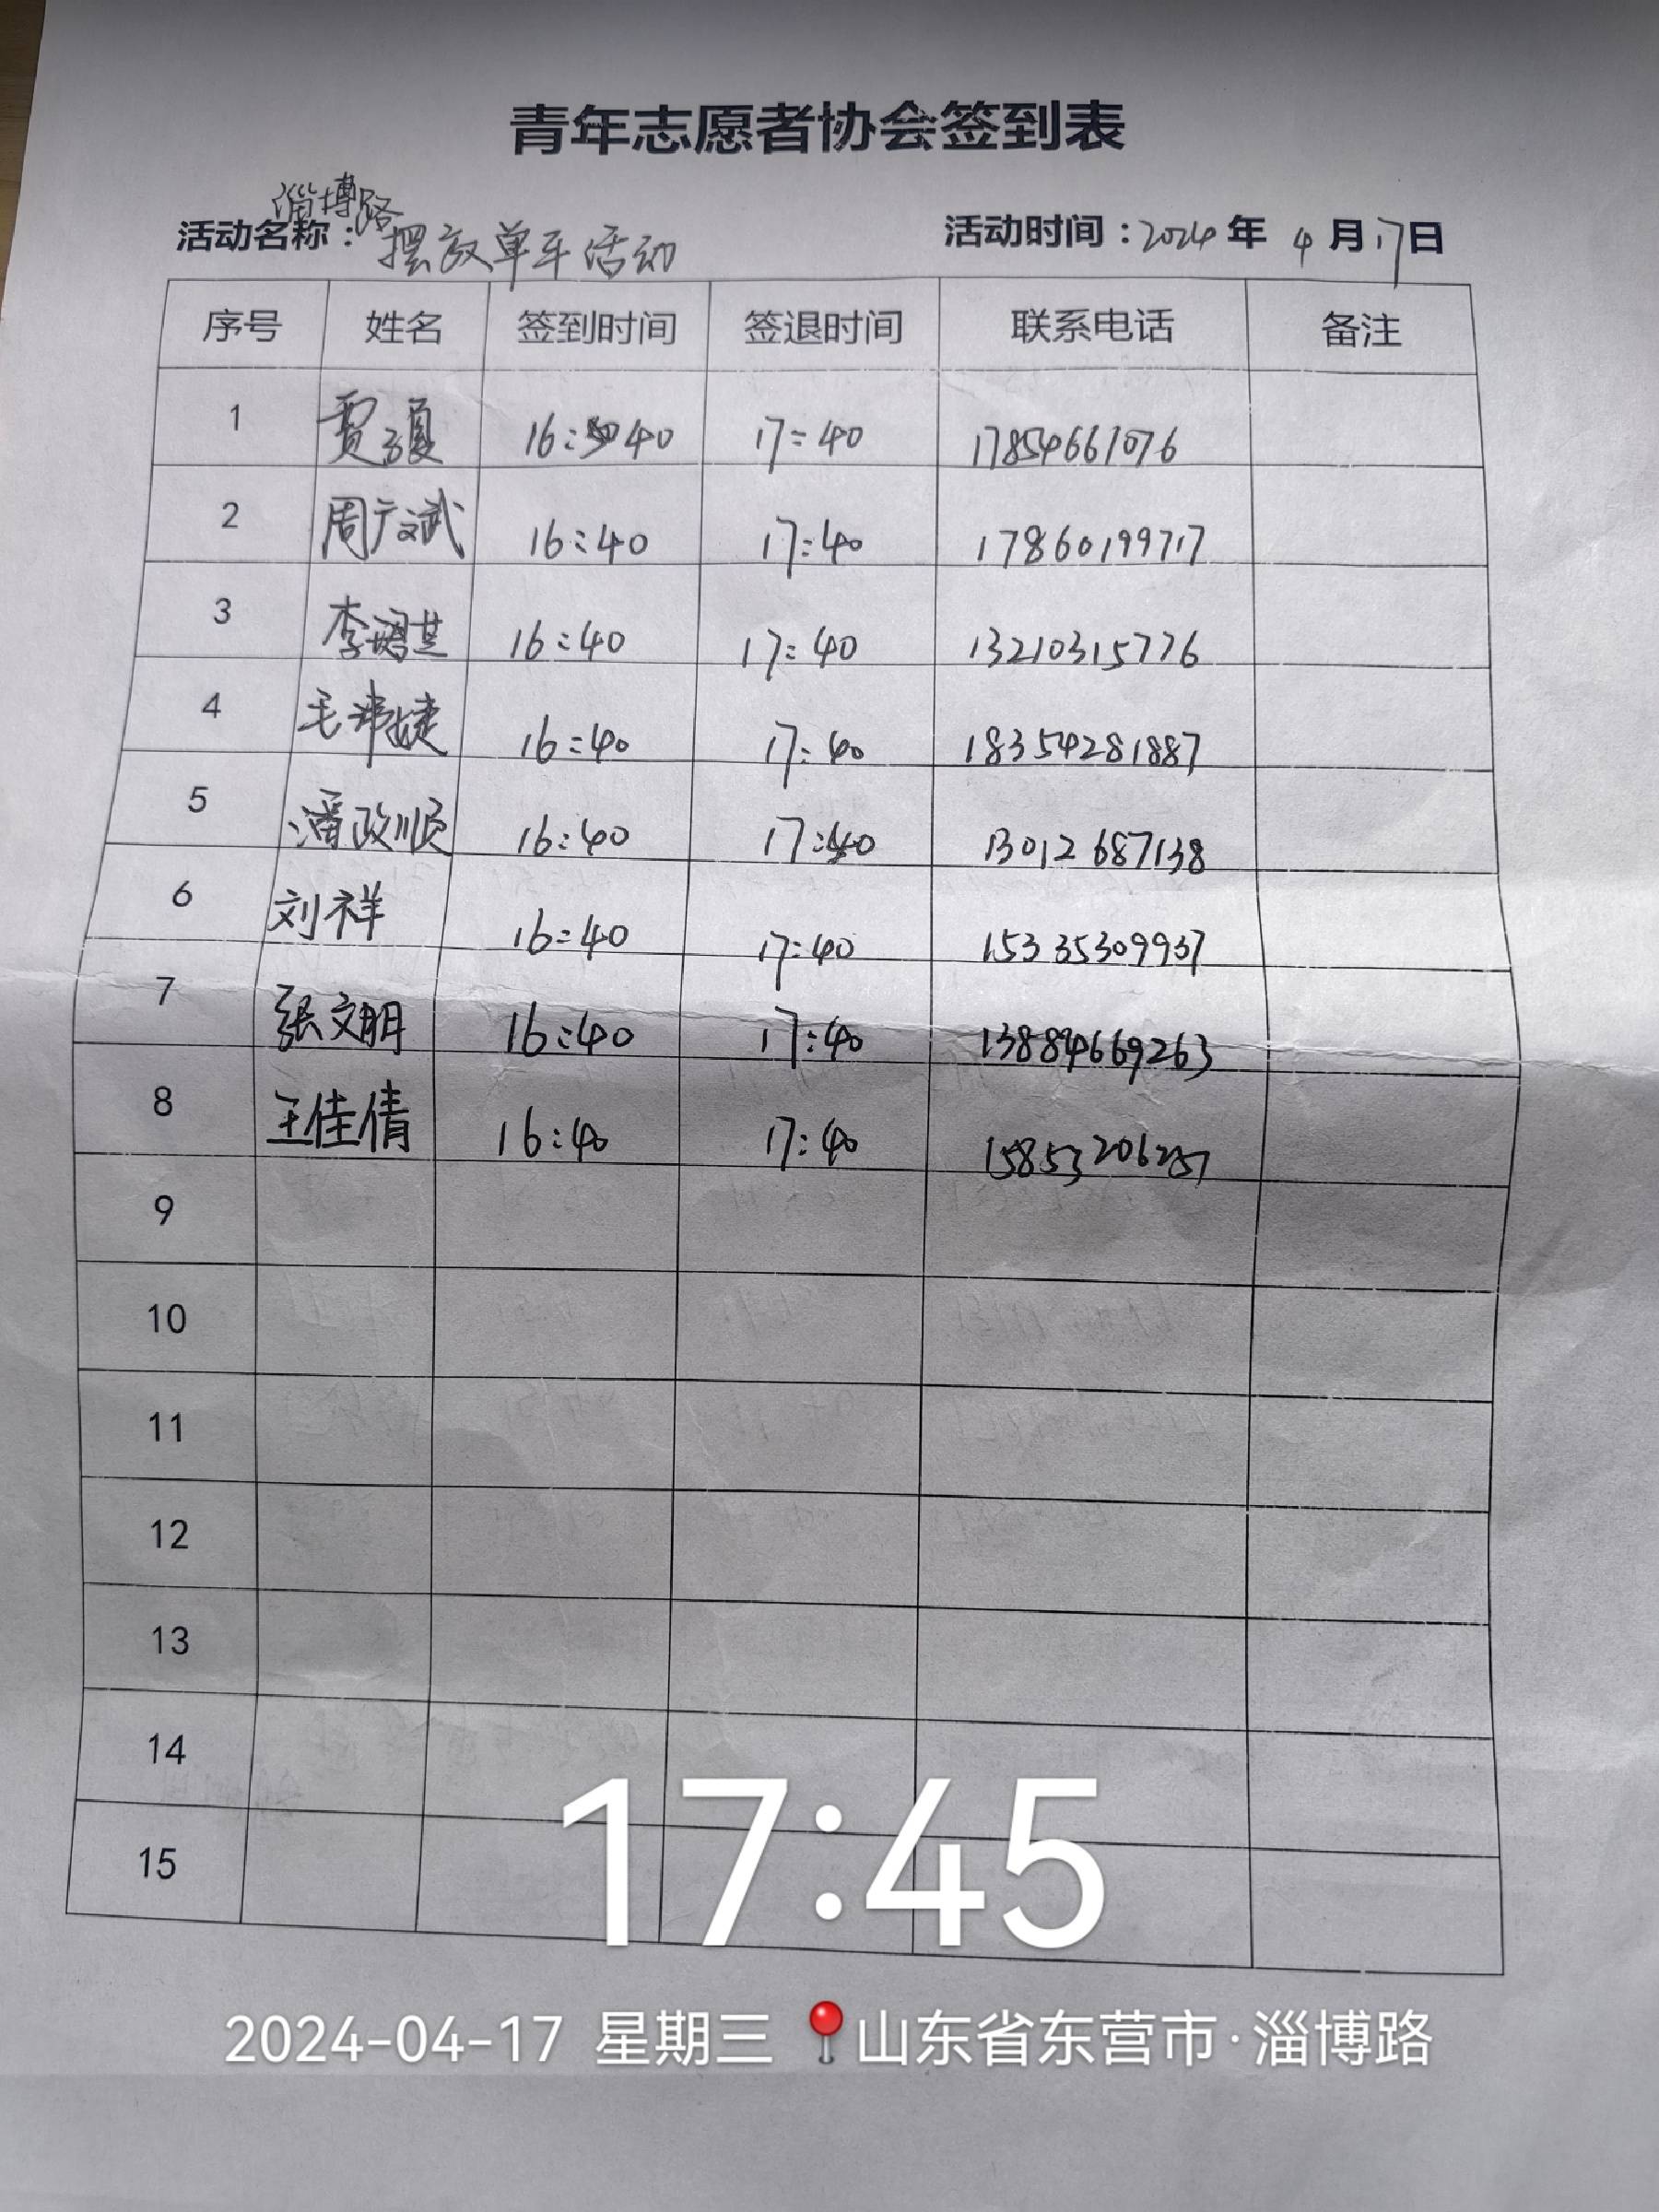 青年志愿者协会签到表
淄博路
活动名称：摆放单车活动 活动时间：2024年4月17日
序号 姓名 签到时间 签退时间 联系电话 备注
1 贾 16:40 17:40 17854661076
2 周广斌 16:40 17:40 17860199717
3 李 16:40 17:40 13210315776
4 毛 捷 16:40 17:40 18354281887
5 潘政顺 16:40 17:40 13012687138
6 刘祥 16:40 17:40 15335309937
7 张文朋 16:40 17:40 13884669263
8 王佳倩 16:40 17:40
9
10
11
12
13
14
15
17:45
2024-04-17 星期三 山东省东营市·淄博路